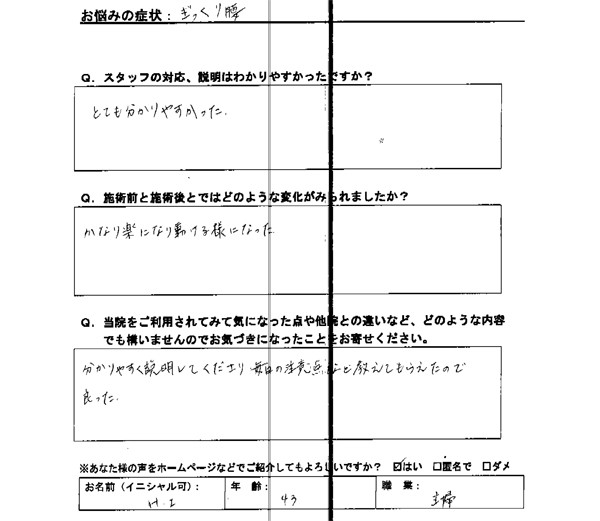 お悩みの症状：ぎっくり腰
Q. スタッフの対応、説明はわかりやすかったですか？
とても分かりやすかった.
Q. 施術前と施術後とではどのような変化がみられましたか？
かなり楽になり動ける様になった
Q. 当院をご利用されてみて気になった点や他院との違いなど、どのような内容
でも構いませんのでお気づきになったことをお寄せください。
分かりやすく説明してくださり 毎日の注意点など教えてもらえたので
良った.
※あなた様の声をホームページなどでご紹介してもよろしいですか？ ☑はい □匿名で □ダメ
お名前（イニシャル可）： 年 齢： 職 業：
H.I 43 主婦